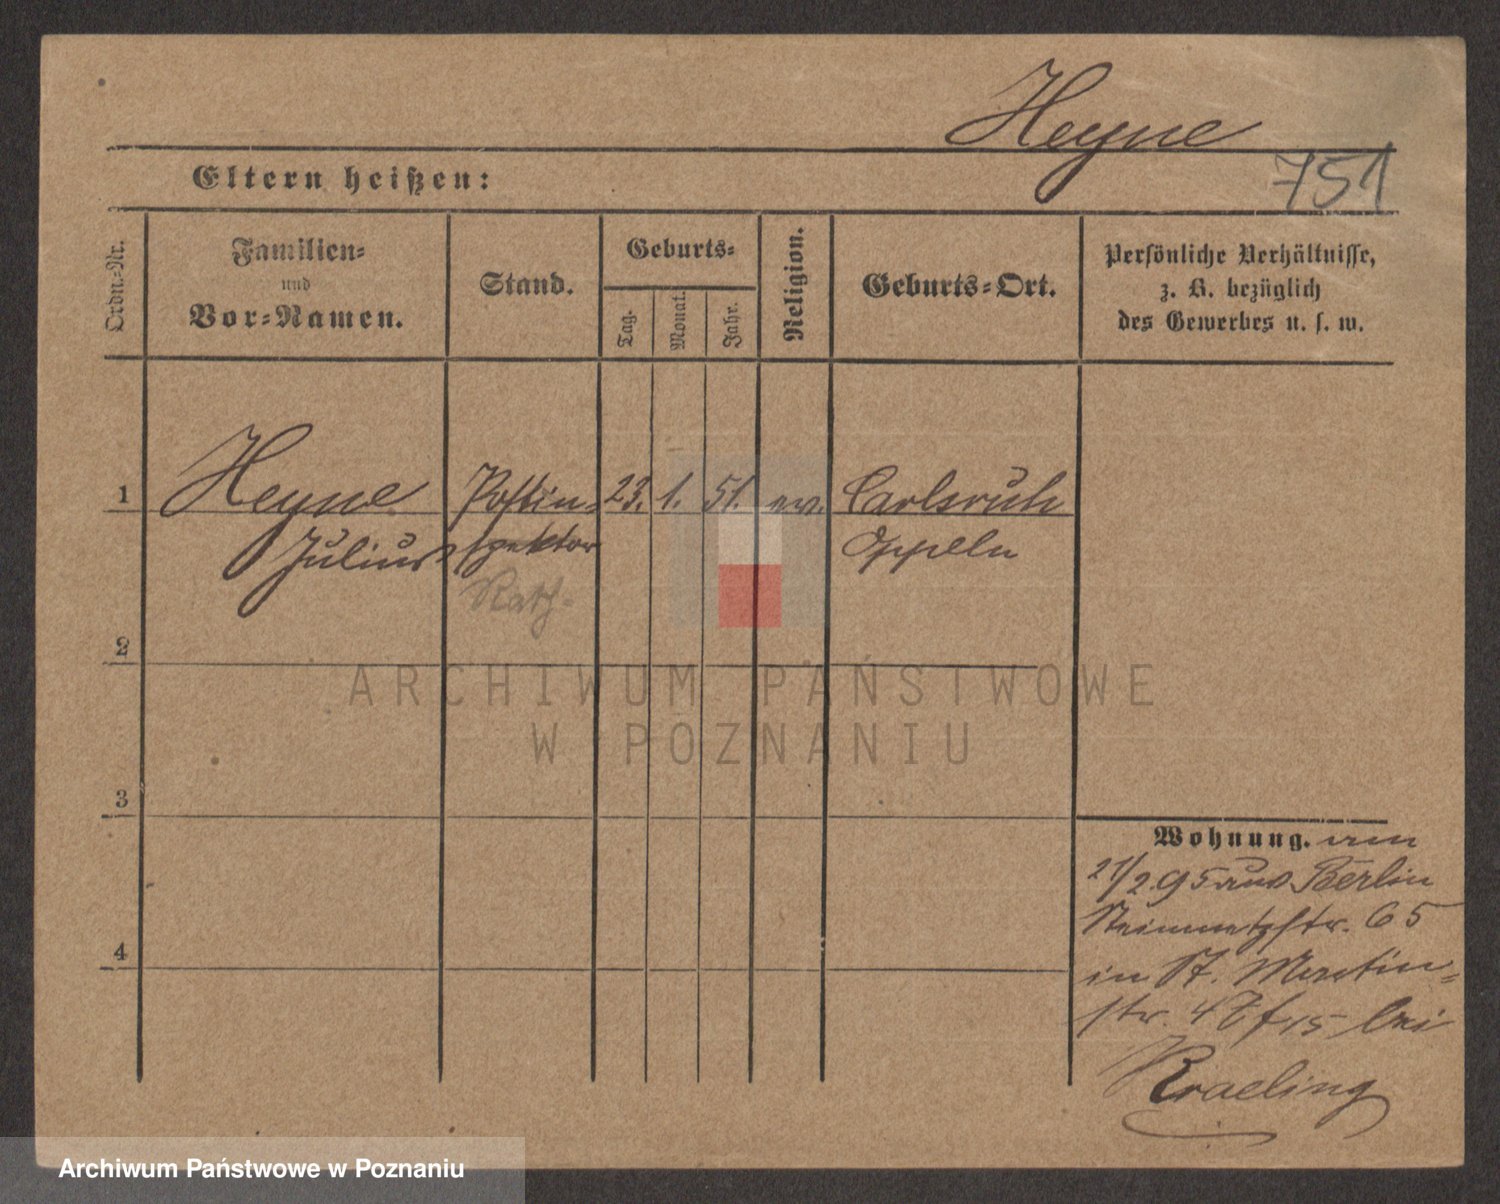 Heyne
751
Eltern heißen:
Ordn.-Nr.
Familien-
und
Vor-Namen.
Stand.
Geburts-
Tag.
Monat.
Jahr.
Religion.
Geburts-Ort.
Persönliche Verhältnisse,
z. B. bezüglich
des Gewerbes u. s. w.
1 Heyne Postin- 23. 1. 51. ev. Carlsruh
Julius spektor Oppeln
2
ARCHIWUM PAŃSTWOWE
W POZNANIU
3
Wohnung. am
21/2 95 aus Berlin
Steinmetzstr. 65
in St. Martin-
str. bei
4
Kraeling
Archiwum Państwowe w Poznaniu